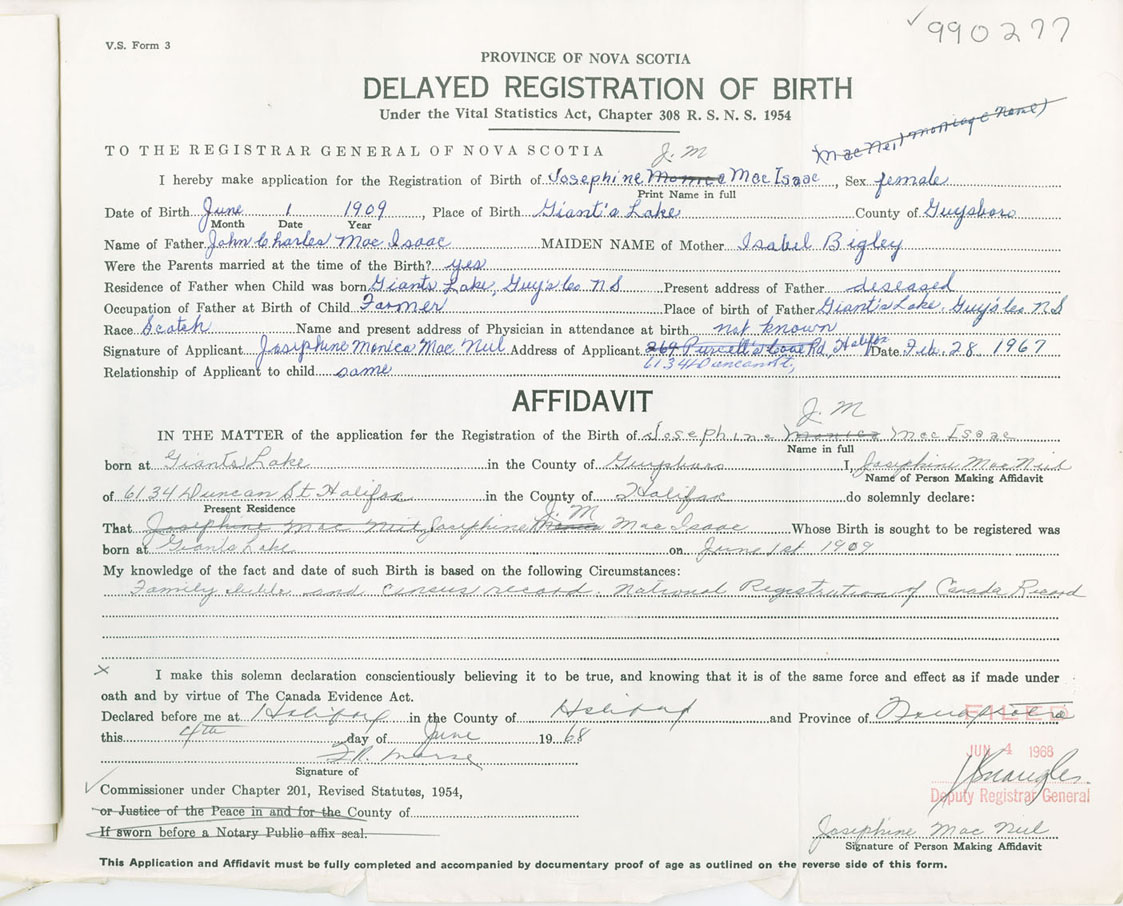 V.S. Form 3
990277
PROVINCE OF NOVA SCOTIA
DELAYED REGISTRATION OF BIRTH
Under the Vital Statistics Act, Chapter 308 R. S. N. S. 1954
MacNeil (marriage name)
TO THE REGISTRAR GENERAL OF NOVA SCOTIA
J. M
I hereby make application for the Registration of Birth of Josephine Monica MacIsaac, Sex female
Print Name in full
Date of Birth June 1 1909, Place of Birth Giant's Lake County of Guysboro
Month Date Year
Name of Father John Charles MacIsaac MAIDEN NAME of Mother Isabel Bigley
Were the Parents married at the time of the Birth? yes
Residence of Father when Child was born Giants Lake, Guy's Co NS Present address of Father deseased
Occupation of Father at Birth of Child Farmer Place of birth of Father Giant's Lake, Guy's Co NS
Race Scotch Name and present address of Physician in attendance at birth not known
Signature of Applicant Josephine Monica Mac Neil Address of Applicant 269 Purcell's Cove Rd, Halifax Date Feb. 28 1967
6134 Duncan St,
Relationship of Applicant to child same
AFFIDAVIT
J. M
IN THE MATTER of the application for the Registration of the Birth of Josephine Monica MacIsaac
Name in full
born at Giants Lake in the County of Guysboro I, Josephine MacNeil
Name of Person Making Affidavit
of 6134 Duncan St Halifax in the County of Halifax do solemnly declare:
Present Residence
J. M
That Josephine Mac Neil Josephine Monica MacIsaac Whose Birth is sought to be registered was
born at Giants Lake on June 1st 1909
My knowledge of the fact and date of such Birth is based on the following Circumstances:
Family bible and census record. National Registration of Canada Record
x I make this solemn declaration conscientiously believing it to be true, and knowing that it is of the same force and effect as if made under
oath and by virtue of The Canada Evidence Act.
Declared before me at Halifax in the County of Halifax and Province of Nova Scotia
FILED
this 4th day of June 1968
JUN 4 1968
Signature of
Commissioner under Chapter 201, Revised Statutes, 1954,
Deputy Registrar General
or Justice of the Peace in and for the County of
If sworn before a Notary Public affix seal.
Josephine Mac Neil
Signature of Person Making Affidavit
This Application and Affidavit must be fully completed and accompanied by documentary proof of age as outlined on the reverse side of this form.